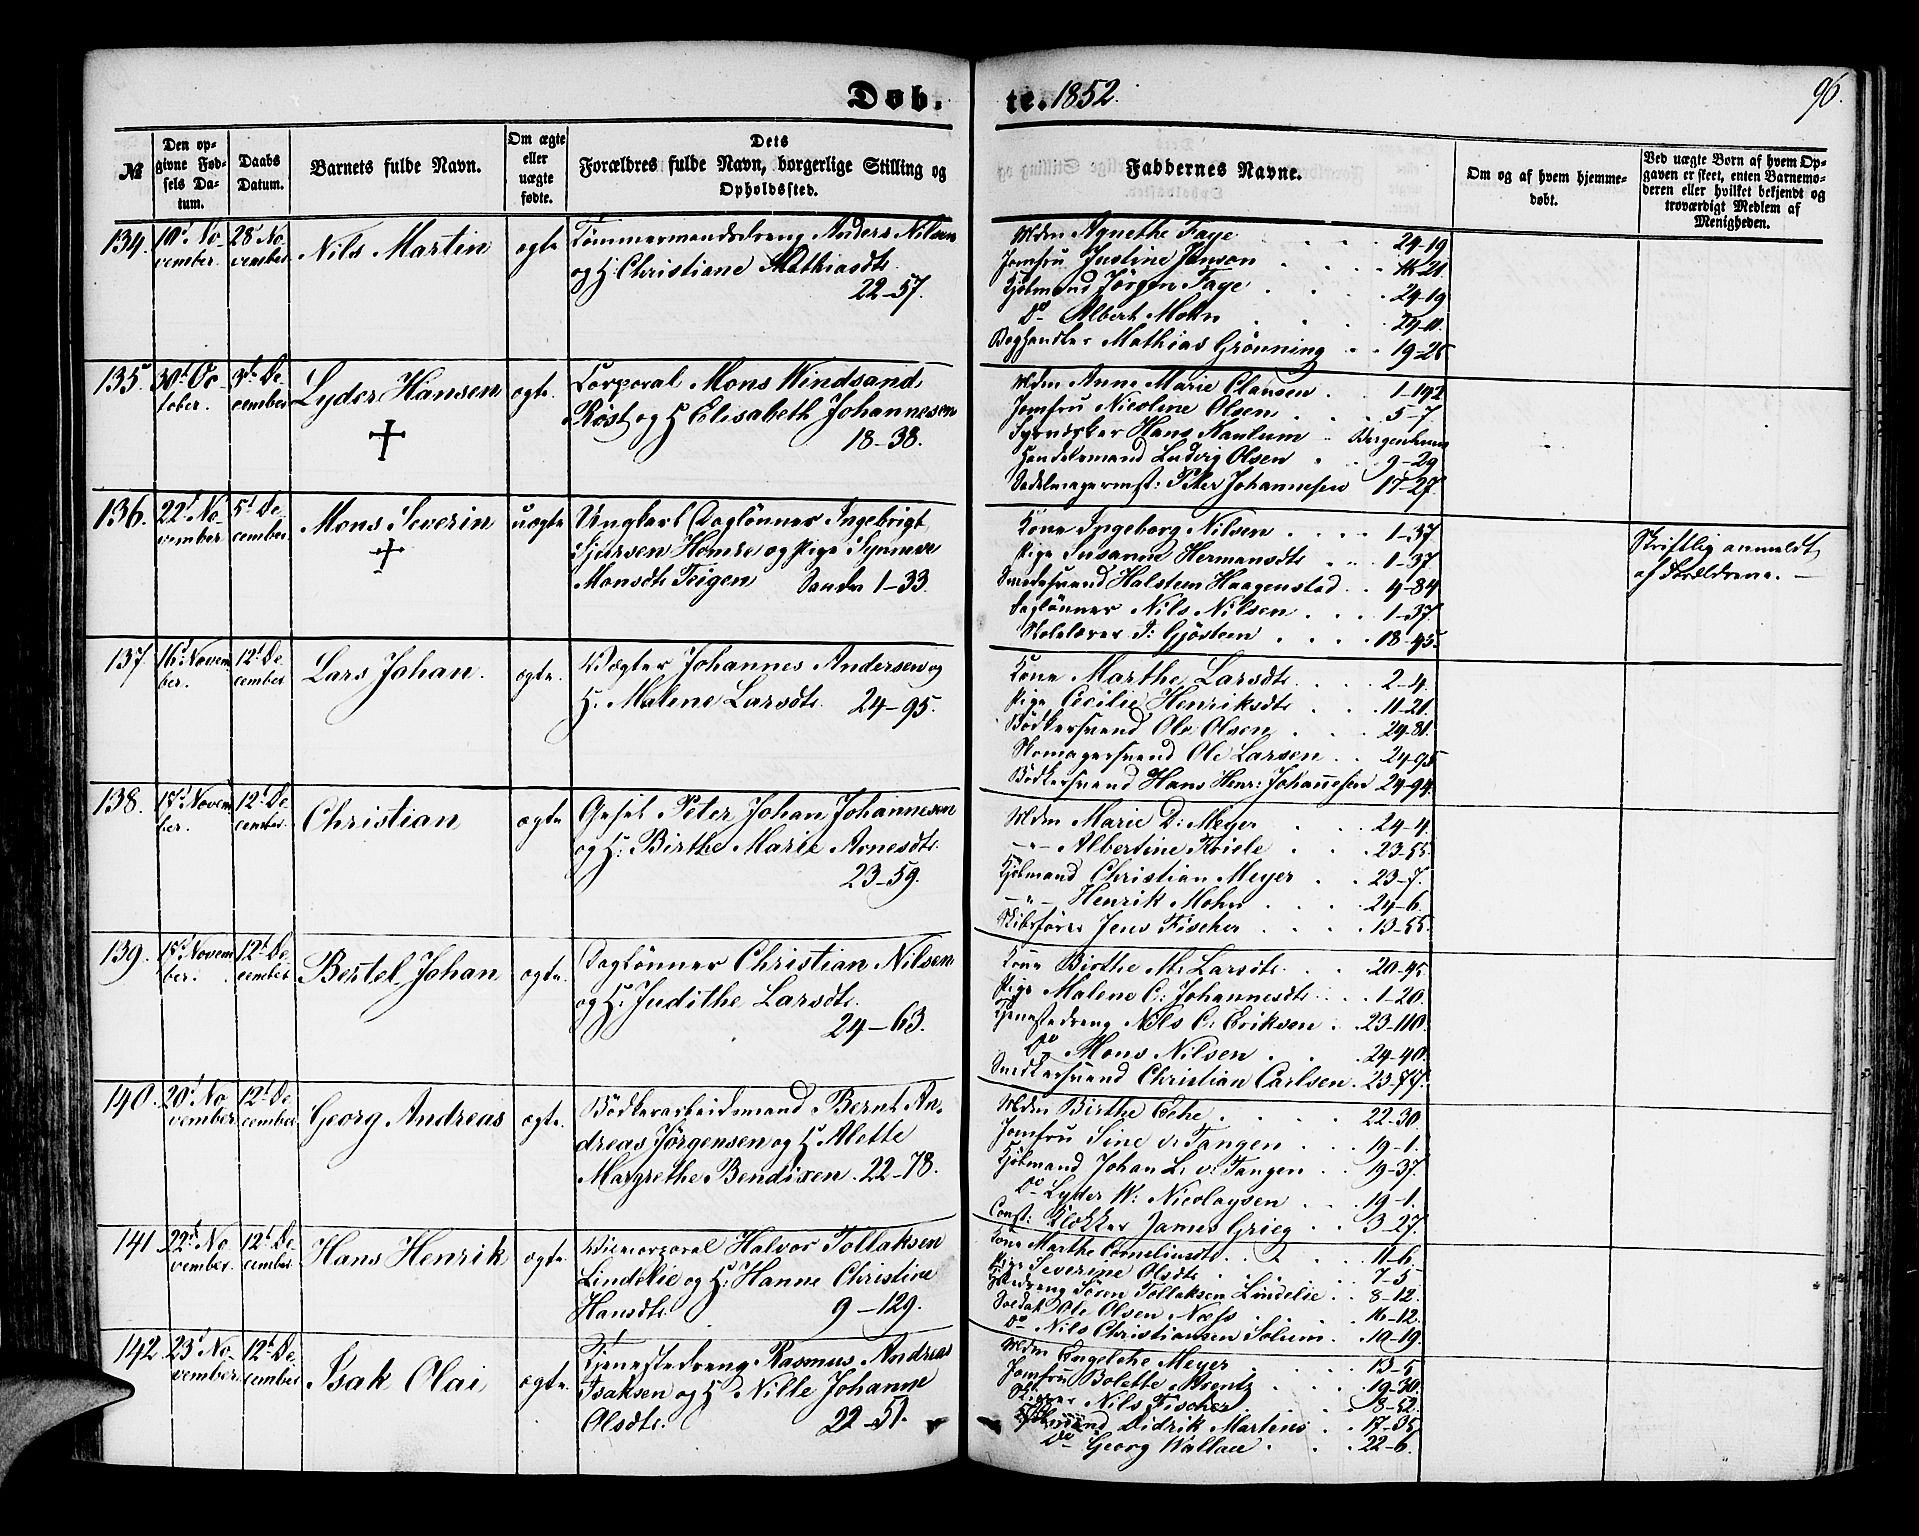 Døb.
te. 1852.
96.
№
Den op-
givne Fød-
sels Da-
tum.
Daabs
Datum.
Barnets fulde Navn.
Om ægte
eller
uægte
fødte.
Dets
Forældres fulde Navn, borgerlige Stilling og
Opholdssted.
Faddernes Navne.
Om og af hvem hjemme-
døbt.
Ved uægte Børn af hvem Op-
gaven er skeet, enten Barnemo-
deren eller hvilket bekjendt og
troværdigt Medlem af
Menigheden.
134.
10d No-
vember.
28d No-
vember
Nils Martin
ægte
Tømmermandsdreng Anders Nilsen
og H. Christiane Mathiasdtr.
22-57.
Mdm Agnethe Faye 24-19
Jomfru Justine Janson 14-21
Kjøbmand Jørgen Faye 24-19
Do Albert Mohn 24-11.
Boghandler Mathias Grønning 19-25
135.
30d Oc-
tober.
3d De-
cember
Lyder Hansen
ægte.
Corporal Mons Windsand
Røst og H Elisabeth Johannesen
18-38.
Mdm Anne Marie Clausen 1-192
Jomfru Nicoline Olsen 5-7
Hans Bergenhuus
Handelsmand Ludvig Olsen 9-29
Sadelmagermst: Peter Johannesen 17-27.
136.
22d No-
vember
5d De-
cember
Mons Severin
uægte
Ungkarl Daglønner Ingebrigt
Sjursen Homre og Pige Synneve
Monsdtr Teigen Sandv 1-33.
Kone Ingeborg Nilsen 1-37
Pige Susanne Hermansdtr 1-37
Smedesvend Halstein Haagenstad 4-84
Daglønner Nils Nilsen 1-37
Skolelærer T: Gjøstein 18-45.
Skriftlig anmeldt
af Forældrene.
137
16d Novem
ber.
12d De-
cember
Lars Johan.
ægte.
Vægter Johannes Andersen og
H. Malene Larsdtr. 24-95.
Kone Marthe Larsdtr 2-4.
Pige Cecilie Henriksdtr 11-21.
Bødkersvend Ole Olsen 24-81.
Skomagersvend Ole Larsen 24-95
Bødkersvend Hans Henr: Johannesen 24-94.
138.
17d Novem
ber.
12d De-
cember
Christian
ægte
Gesel Peter Johan Johannesen
og H: Birthe Marie Arnesdtr.
23-59.
Mdm Marie D: Meyer 24-4.
-"- Albertine Friele 23-55.
Kjøbmand Christian Meyer 23-7.
-"- Henrik Mohn 24-6.
Skibsfører Jens Fischer 13-55.
139.
17d Novem
ber.
12d De-
cember
Bertel Johan
ægte.
Daglønner Christian Nilsen
og H: Judithe Larsdtr.
24-63.
Kone Birthe M: Larsdtr. 20-45.
Pige Malene C: Johannesdtr. 1-20.
Tjenestedreng Nils C: Eriksen 23-110.
Do Mons Nilsen 24-40.
Snedkersvend Christian Carlsen 23-77.
140.
20d No-
vember
12d De-
cember
Georg Andreas
ægte.
Bødkerarbeidsmand Bernt An-
dreas Jørgensen og H Alette
Margrethe Bendixen. 22-78.
Mdm Birthe 22-30.
Jomfru Sine v. Tangen 19-1.
Kjøbmand Johan L. v. Tangen 19-37.
Do Lyder W: Nicolaysen 19-1.
Const: Klokker James Grieg 3-27.
141
22d No-
vember.
12d De-
cember
Hans Henrik
ægte.
Vicecorporal Halvor Tollaksen
Lindelie og H: Hanne Christine
Hansdtr. 9-129.
Kone Marthe Corneliusdtr 11-6.
Pige Severine Olsdtr 7-5
Søren Tollaksen Lindelie 8-12.
Soldat Ole Olsen Næss 16-12.
Do Nils Christiansen Solum. 19-19.
142.
23d No-
vember.
12d De-
cember
Isak Olai
ægte.
Tjenestedreng Rasmus Andreas
Isaksen og H Nille Johanne
Olsdtr. 22-51.
Mdm Engelche Meyer 13-5
Jomfru Bolette Krentz 19-30.
Nils Fischer 8-52.
Kjøbmand Didrik Martens 17-35
Do Georg Wallace 22-6.